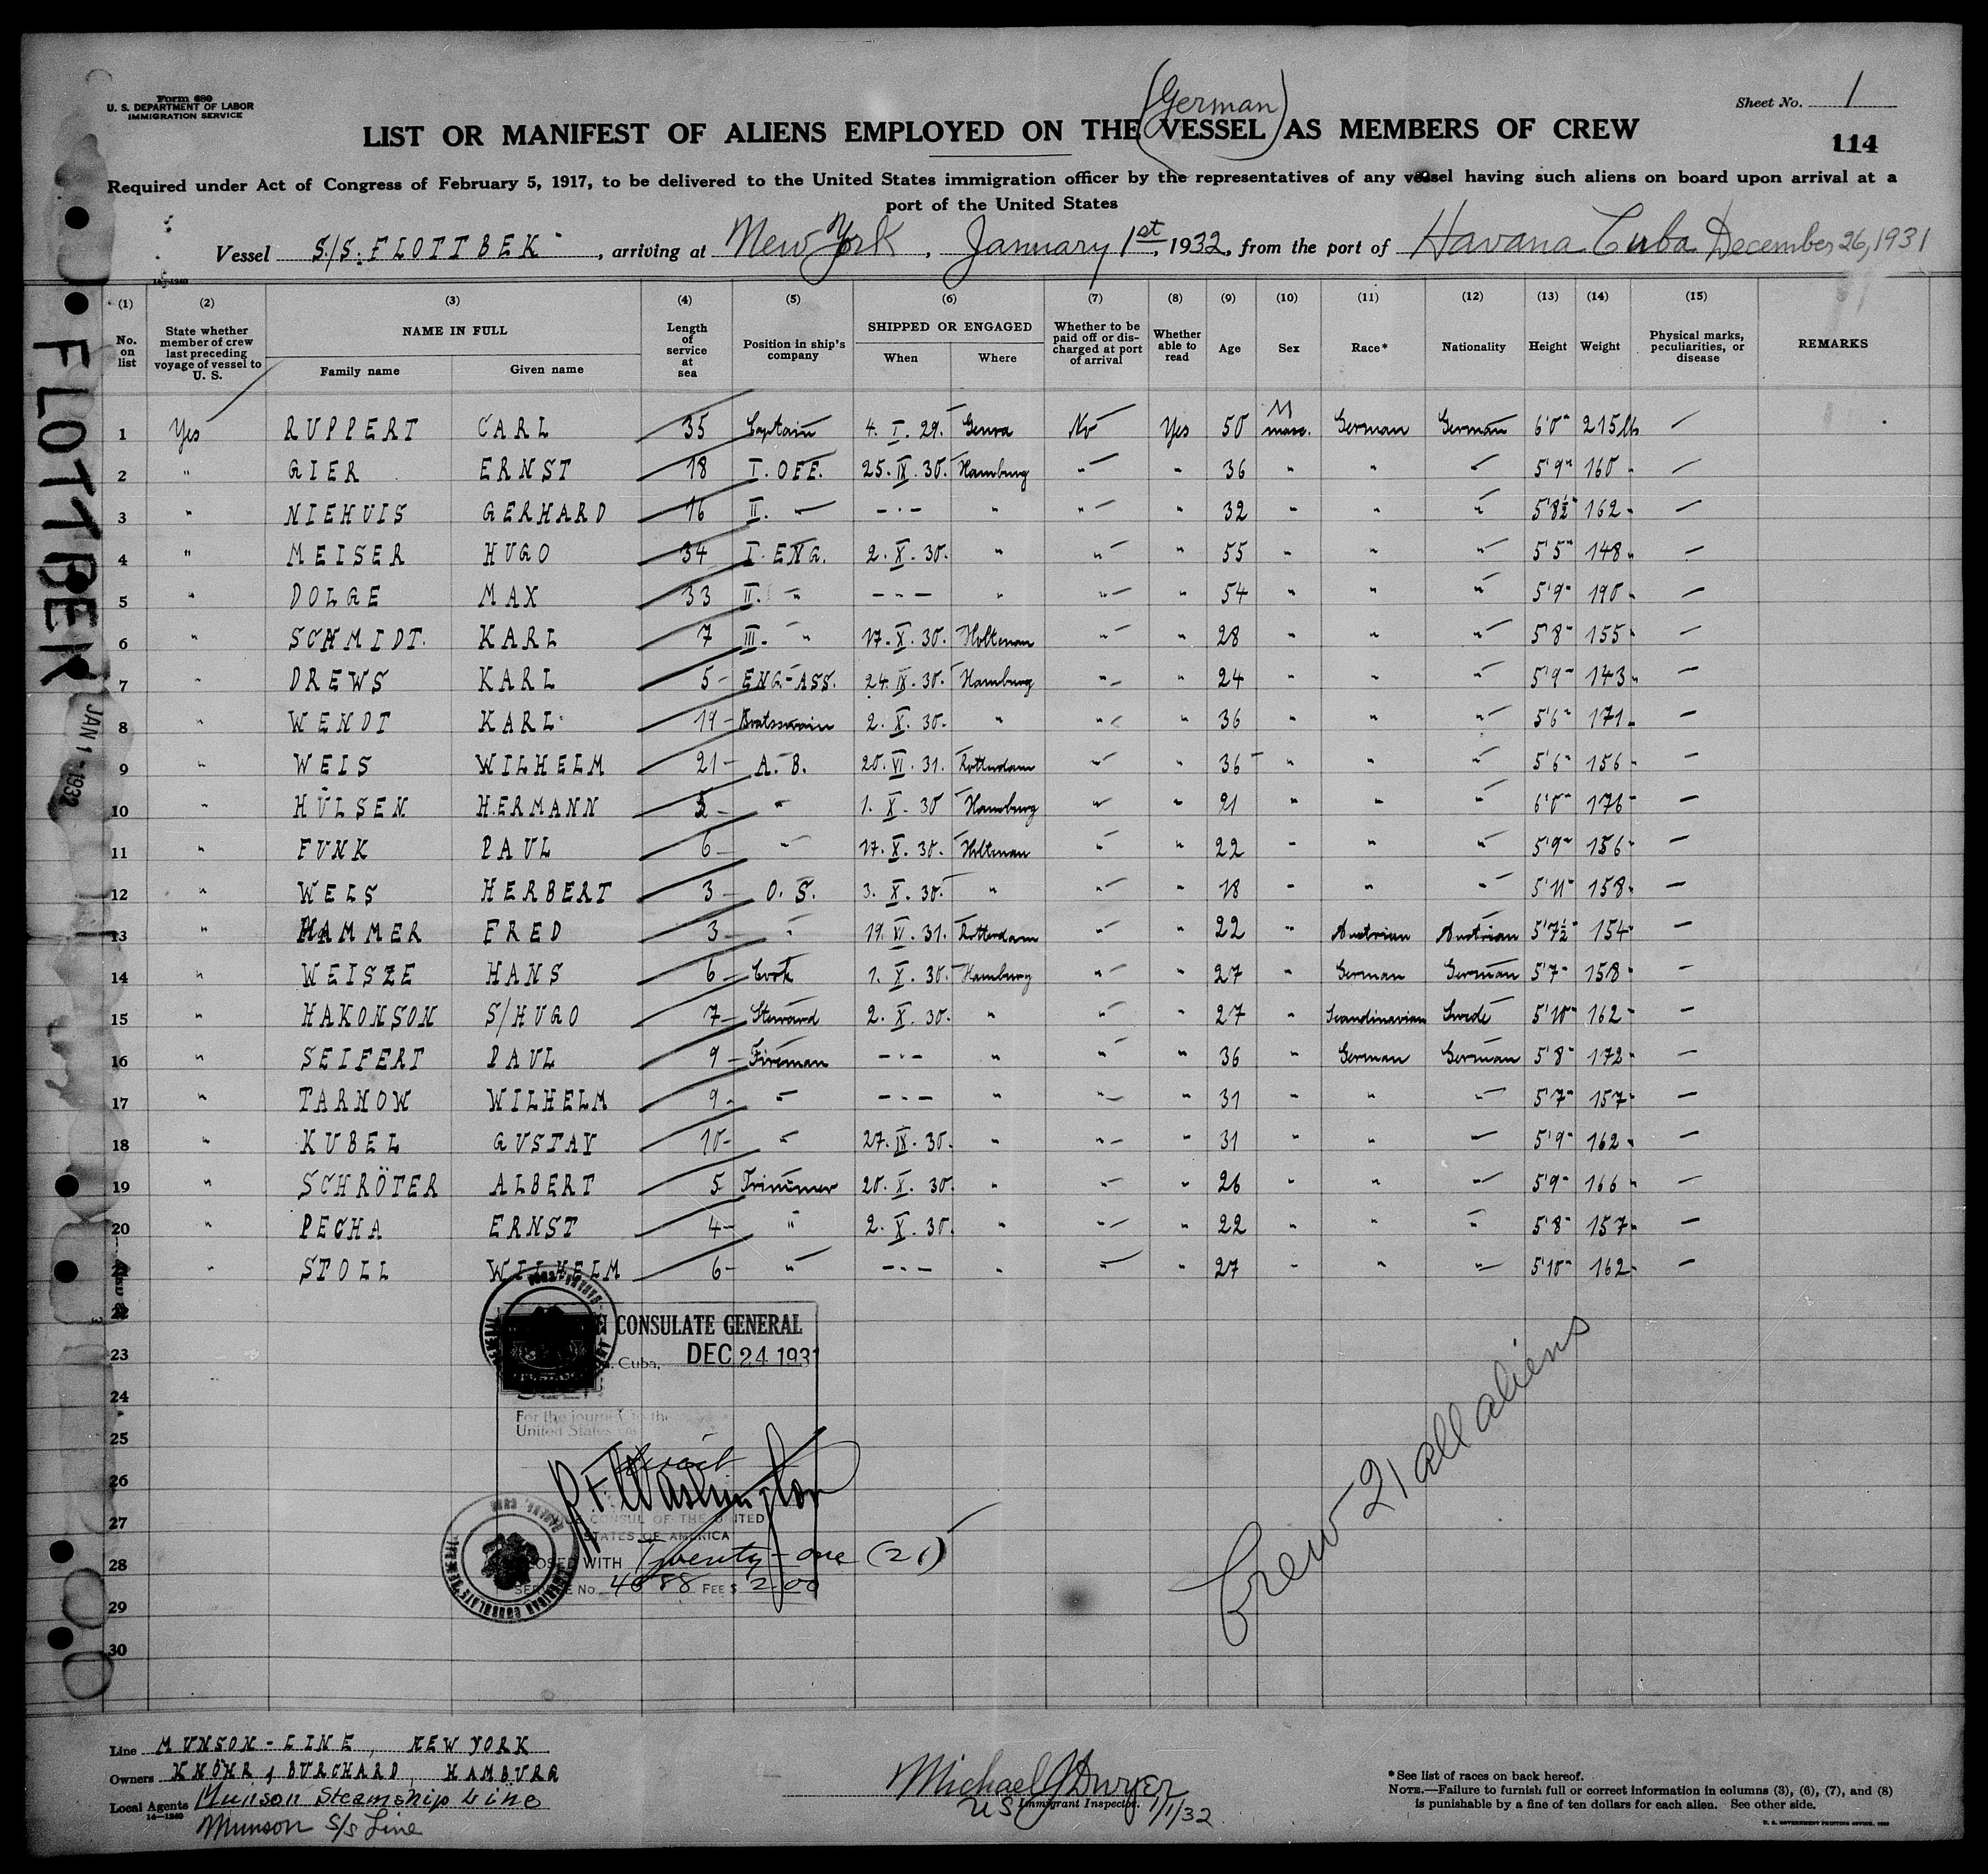 Form 680
U. S. DEPARTMENT OF LABOR
IMMIGRATION SERVICE
Sheet No. 1
(German)
LIST OR MANIFEST OF ALIENS EMPLOYED ON THE VESSEL AS MEMBERS OF CREW
114
Required under Act of Congress of February 5, 1917, to be delivered to the United States immigration officer by the representatives of any vessel having such aliens on board upon arrival at a
port of the United States
Vessel S/S. FLOTTBEK, arriving at New York, January 1st, 1932, from the port of Havana Cuba December 26, 1931
FLOTTBEK
JAN 1 - 1932
(1) (2) (3) (4) (5) (6) (7) (8) (9) (10) (11) (12) (13) (14) (15)
No. on list | State whether member of crew last preceding voyage of vessel to U. S. | NAME IN FULL Family name Given name | Length of service at sea | Position in ship's company | SHIPPED OR ENGAGED When Where | Whether to be paid off or discharged at port of arrival | Whether able to read | Age | Sex | Race* | Nationality | Height | Weight | Physical marks, peculiarities, or disease | REMARKS
1 Yes RUPPERT CARL 35 Captain 4. I. 29. Genova No Yes 50 M masc. German German 6'0" 215 lbs —
2 " GIER ERNST 18 I. OFF. 25. IX. 30. Hamburg " " 36 " " " 5'9" 160 " —
3 " NIEHUIS GERHARD 16 II. " - " - " " " 32 " " " 5'8½" 162 " —
4 " MEISER HUGO 34 I. ENG. 2. X. 30. " " " 55 " " " 5'5" 148 " —
5 " DOLGE MAX 33 II. " - " - " " " 54 " " " 5'9" 190 " —
6 " SCHMIDT. KARL 7 III. " 17. X. 30. Holtenau " " 28 " " " 5'8" 155 " —
7 " DREWS KARL 5 - ENG.-ASS. 24. IX. 30. Hamburg " " 24 " " " 5'9" 143 " —
8 " WENDT KARL 19 - Boatswain 2. X. 30. " " " 36 " " " 5'6" 171 " —
9 " WEIS WILHELM 21 - A. B. 20. VI. 31. Rotterdam " " 36 " " " 5'6" 156 " —
10 " HÜLSEN HERMANN 5 - " 1. X. 30 Hamburg " " 21 " " " 6'0" 176 " —
11 " FUNK PAUL 6 - " 17. X. 30. Holtenau " " 22 " " " 5'9" 156 " —
12 " WELS HERBERT 3 - O. S. 3. X. 30. " " " 18 " " " 5'11" 158 " —
13 " HAMMER FRED 3 - " 19. VI. 31. Rotterdam " " 22 " Austrian Austrian 5'7½" 154 " —
14 " WEISZE HANS 6 - Cook 1. X. 30. Hamburg " " 27 " German German 5'7" 158 " —
15 " HAKONSON S/HUGO 7 - Steward 2. X. 30. " " " 27 " Scandinavian Swede 5'10" 162 " —
16 " SEIFERT PAUL 9 - Fireman - " - " " " 36 " German German 5'8" 172 " —
17 " TARNOW WILHELM 9 - " - " - " " " 31 " " " 5'7" 157 " —
18 " KUBEL GUSTAV 10 - " 27. IX. 30. " " " 31 " " " 5'9" 162 " —
19 " SCHRÖTER ALBERT 5 Trimmer 20. X. 30. " " " 26 " " " 5'9" 166 " —
20 " PECHA ERNST 4 - " 2. X. 30. " " " 22 " " " 5'8" 157 " —
21 " STOLL WILHELM 6 - " - " - " " " 27 " " " 5'10" 162 " —
22
23
24
25
26
27
28
29
30
CONSULATE GENERAL
Cuba, DEC 24 1931
For the journey to the
United States via
direct
Washington
CONSUL OF THE UNITED
STATES OF AMERICA
WITH Twenty-one (21)
SERVICE No. 4688 FEE $ 2.00
Crew 21 all aliens
Line MUNSON-LINE, NEW YORK
Owners KNÖHR & BURCHARD, HAMBURG
Local Agents Munson Steamship Line
14—1240
Munson S/s Line
Michael J Dwyer
US Immigrant Inspector. 1/1/32
*See list of races on back hereof.
NOTE.—Failure to furnish full or correct information in columns (3), (6), (7), and (8)
is punishable by a fine of ten dollars for each alien. See other side.